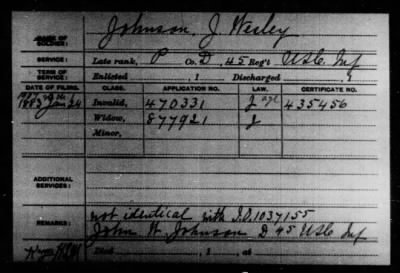 NAME OF SOLDIER: Johnson, J Wesley
SERVICE: Late rank, P Co. D, 45 Reg't U S C. Inf
TERM OF SERVICE: Enlisted , 1 Discharged , 1
DATE OF FILING. CLASS. APPLICATION NO. LAW. CERTIFICATE NO.
1883 Jan 24 Invalid, 470331 J 435456
Widow, 877921 J
Minor,
ADDITIONAL SERVICES:
REMARKS: not identical with I.O. 1037155
John W. Johnson D 45 USC Inf
Died , 1 , at